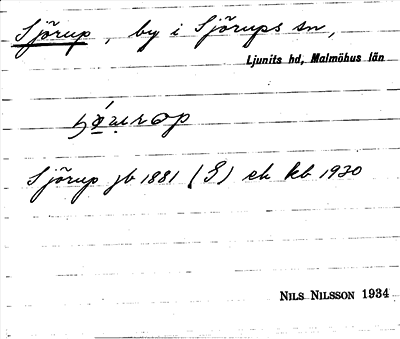 Sjörup, by i Sjörups sn,
Ljunits hd, Malmöhus län
Sjörup jb 1881 (S) ek kb 1930
NILS NILSSON 1934